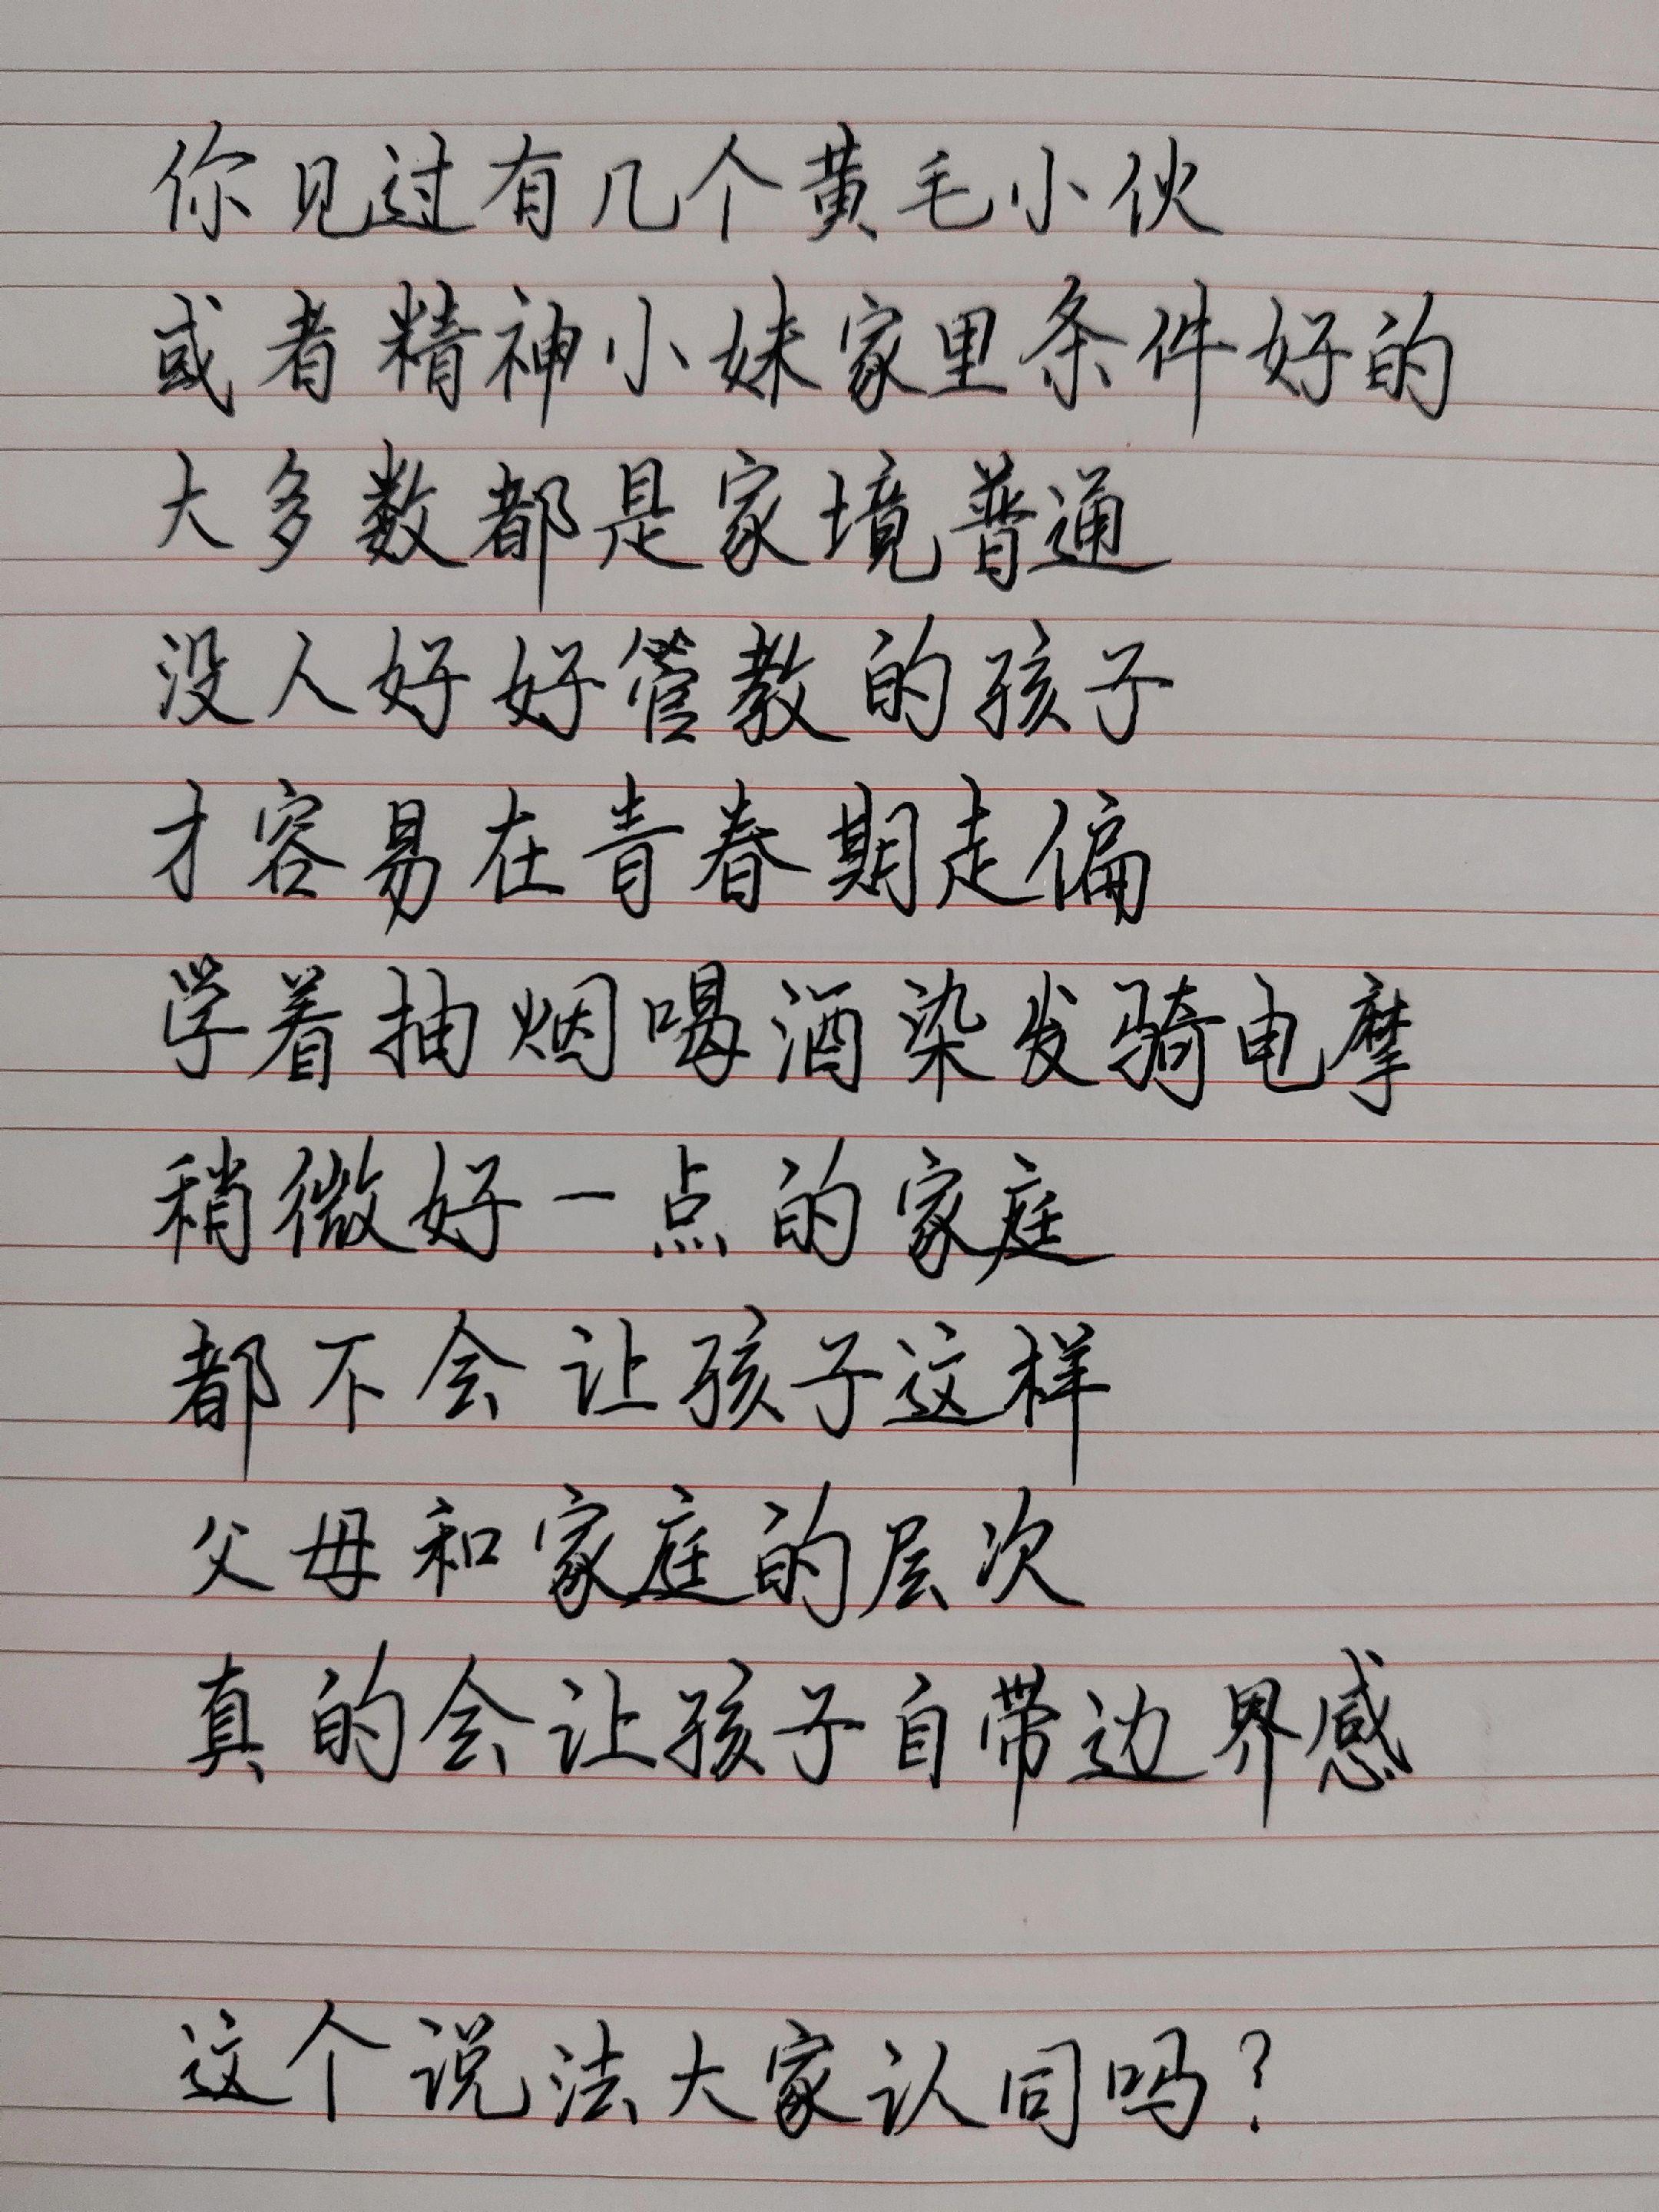 你见过有几个黄毛小伙
或者精神小妹家里条件好的
大多数都是家境普通
没人好好管教的孩子
才容易在青春期走偏
学着抽烟喝酒染发骑电摩
稍微好一点的家庭
都不会让孩子这样
父母和家庭的层次
真的会让孩子自带边界感
这个说法大家认同吗?